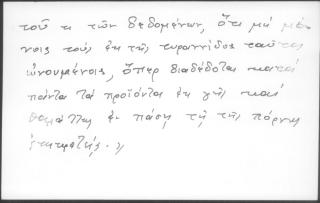 τοῦ κ τῶν δεδομένων, ὅτι μὴ μέ-
νοις τοὺς ἐκ τῆς τυραννίδος ταῦτα
ὠνουμένοις, ὅπερ διαδέδοται κατὰ
πάντα τὰ προϊόντα ἐκ γῆς καὶ
θαλάττης ἐν πάσῃ τῇ τῆς πόρνης
ἐπικρατείᾳ.»